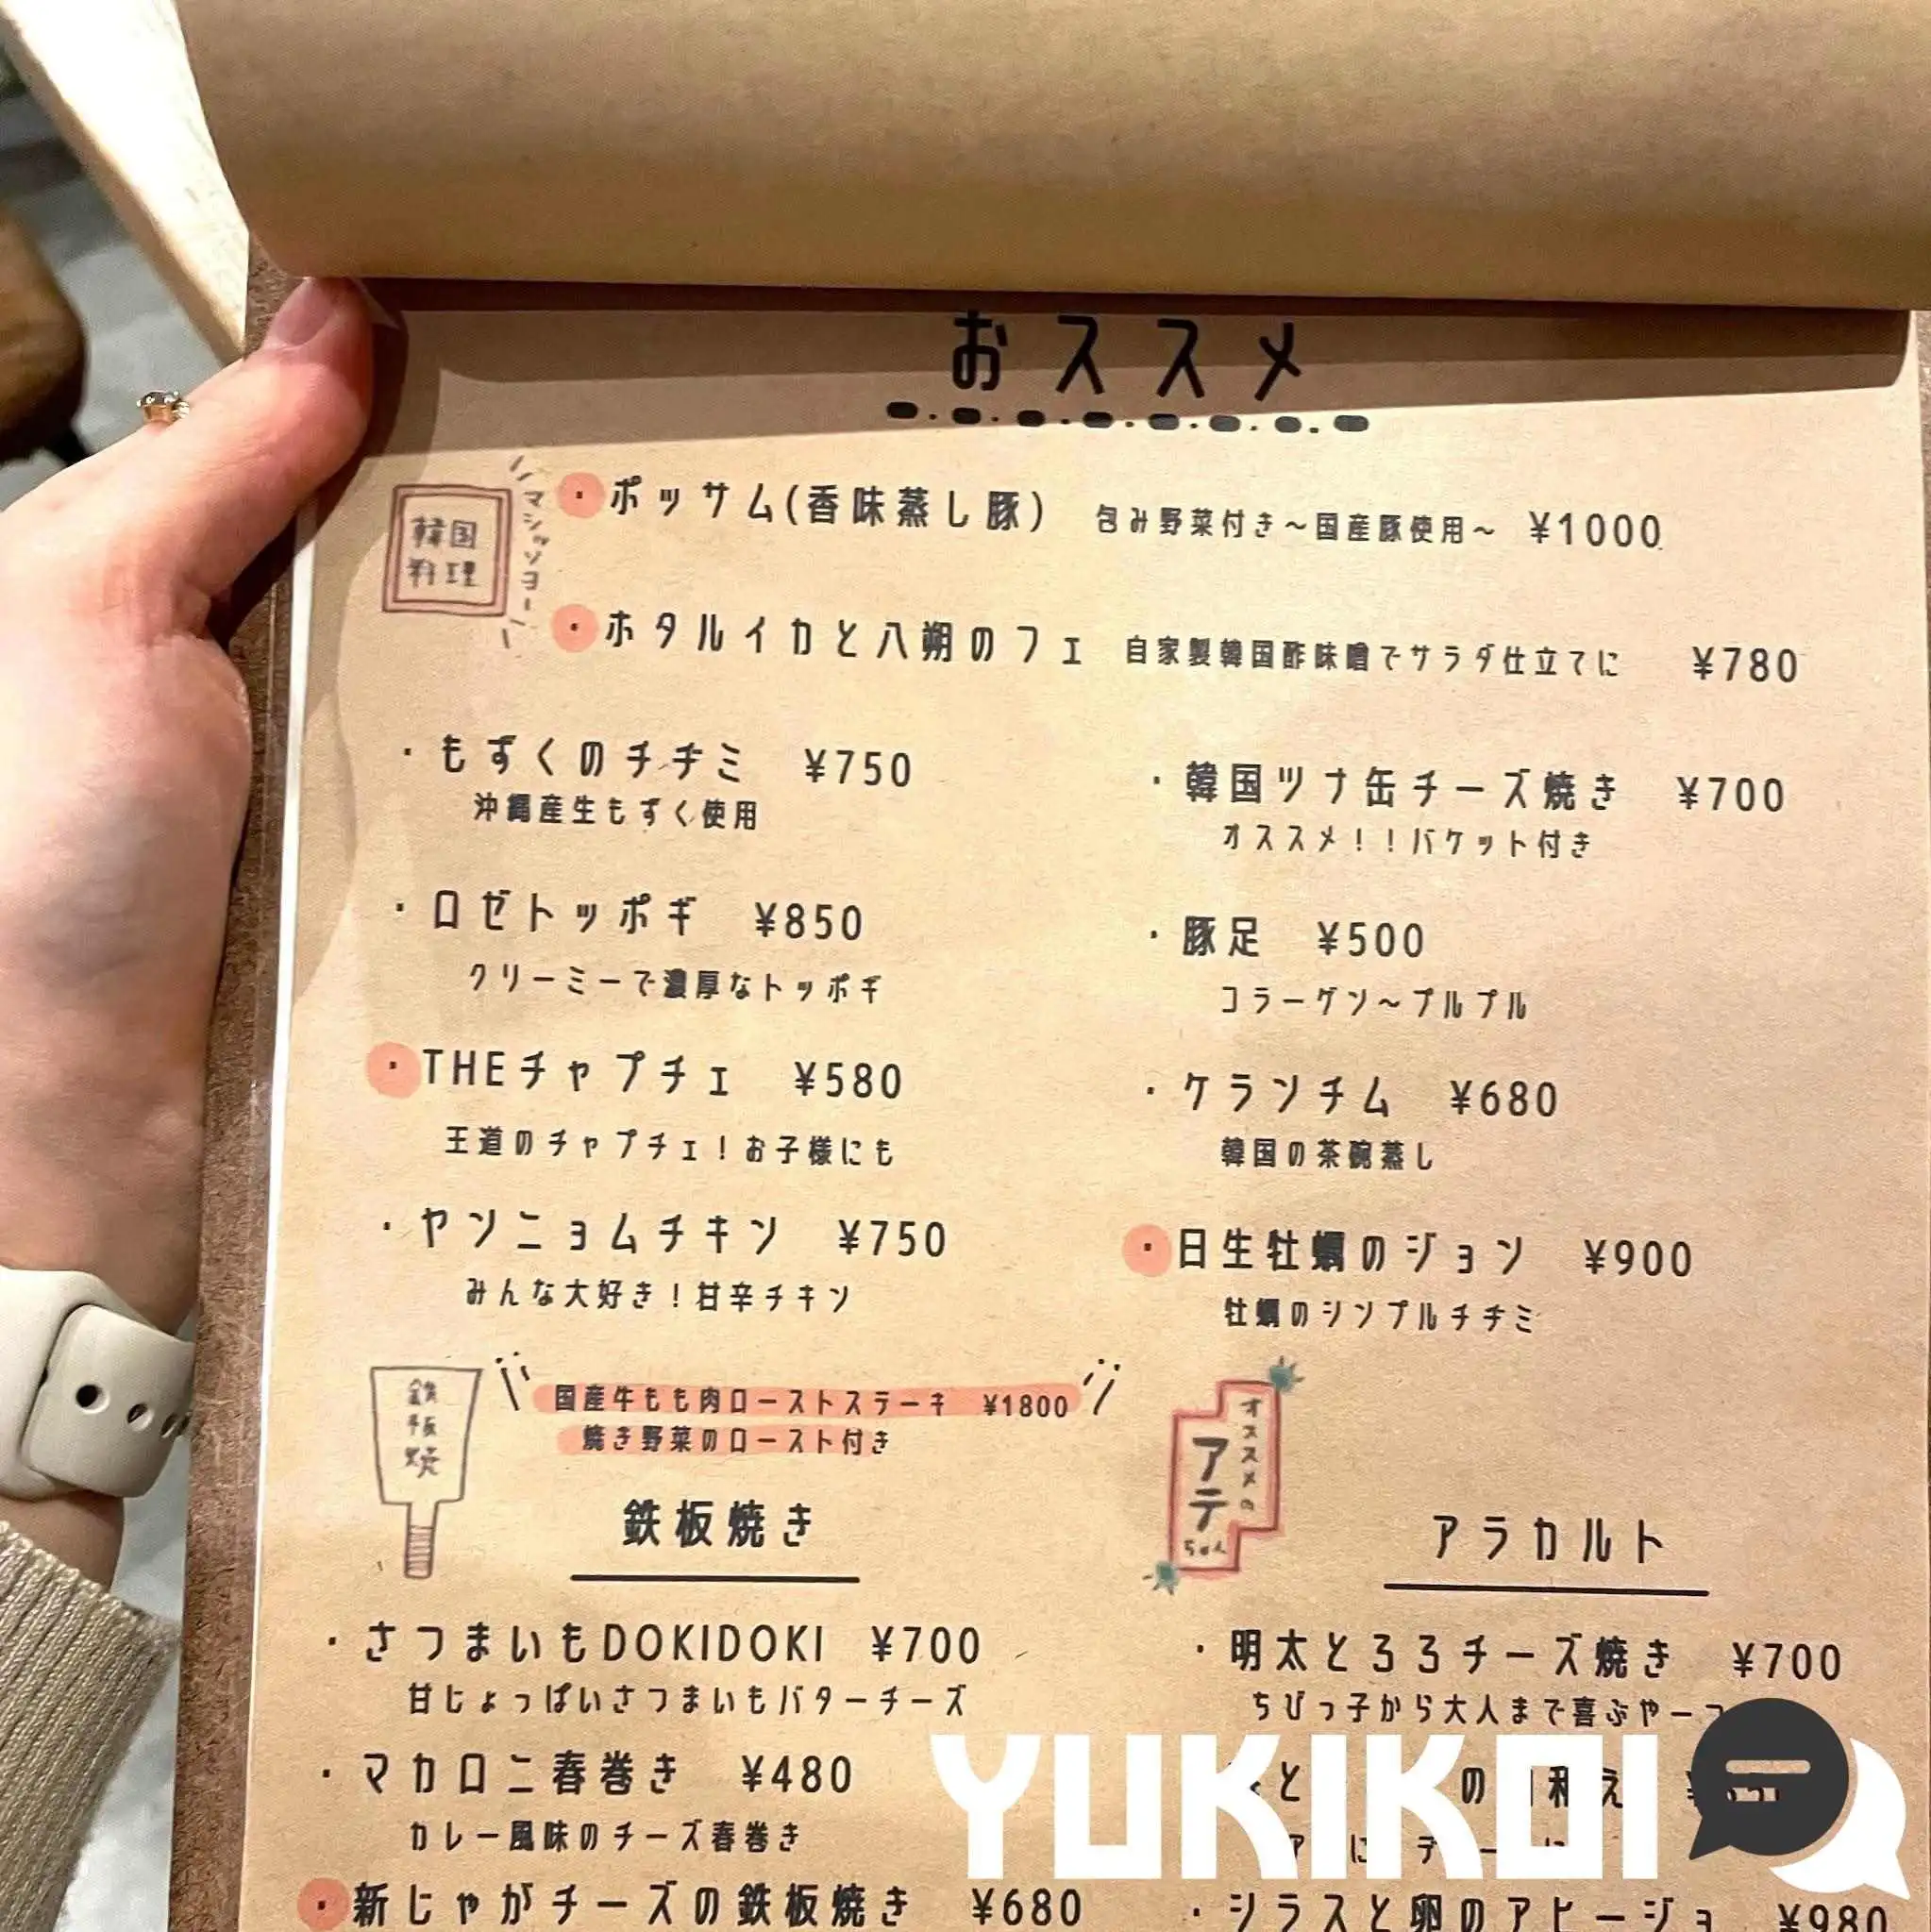 おススメ
韓国
料理
マシッソヨー
・ポッサム(香味蒸し豚) 包み野菜付き～国産豚使用～ ¥1000
・ホタルイカと八朔のフェ 自家製韓国酢味噌でサラダ仕立てに ¥780
・もずくのチヂミ ¥750
沖縄産生もずく使用
・ロゼトッポギ ¥850
クリーミーで濃厚なトッポギ
・THEチャプチェ ¥580
王道のチャプチェ！お子様にも
・ヤンニョムチキン ¥750
みんな大好き！甘辛チキン
・韓国ツナ缶チーズ焼き ¥700
オススメ！！バケット付き
・豚足 ¥500
コラーゲン～プルプル
・ケランチム ¥680
韓国の茶碗蒸し
・日生牡蠣のジョン ¥900
牡蠣のシンプルチヂミ
国産牛もも肉ローストステーキ ¥1800
焼き野菜のロースト付き
鉄板焼
鉄板焼き
・さつまいもDOKIDOKI ¥700
甘じょっぱいさつまいもバターチーズ
・マカロニ春巻き ¥480
カレー風味のチーズ春巻き
・新じゃがチーズの鉄板焼き ¥680
オススメの
アテ
ちゃん
アラカルト
・明太とろろチーズ焼き ¥700
ちびっ子から大人まで喜ぶやーつ
・シラスと卵のアヒージョ ¥980
YUKIKOI